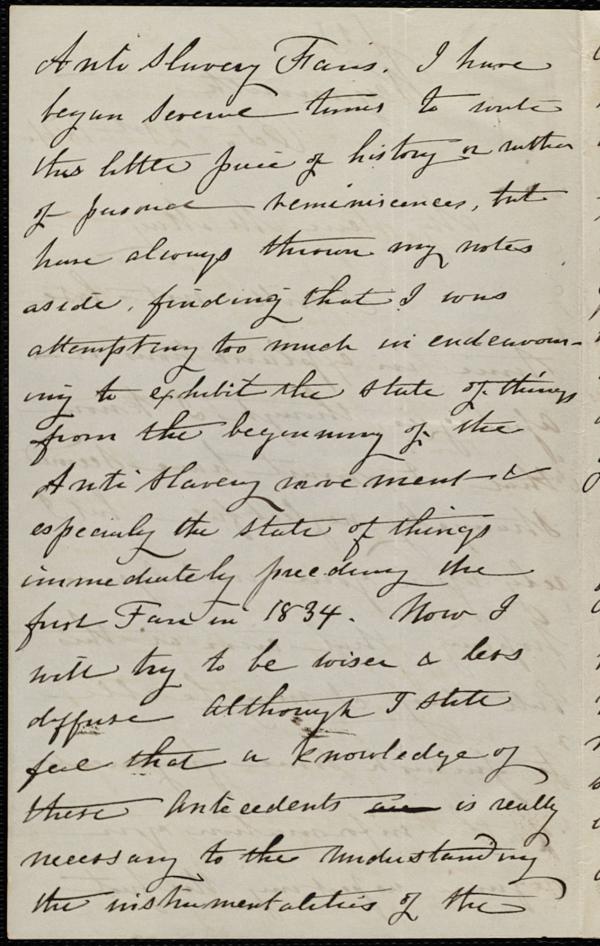 Anti Slavery Fairs. I have
began several times to write
this little piece of history or rather
of personal reminiscences, but
have always thrown my notes
aside, finding that I was
attempting too much in endeavour-
ing to exhibit the state of things
from the beginning of the
Anti Slavery movement &
especially the state of things
immediately preceding the
first Fair in 1834. Now I
will try to be wiser & less
diffuse although I still
feel that a knowledge of
these antecedents are is really
necessary to the understanding
the instrumentalities of the